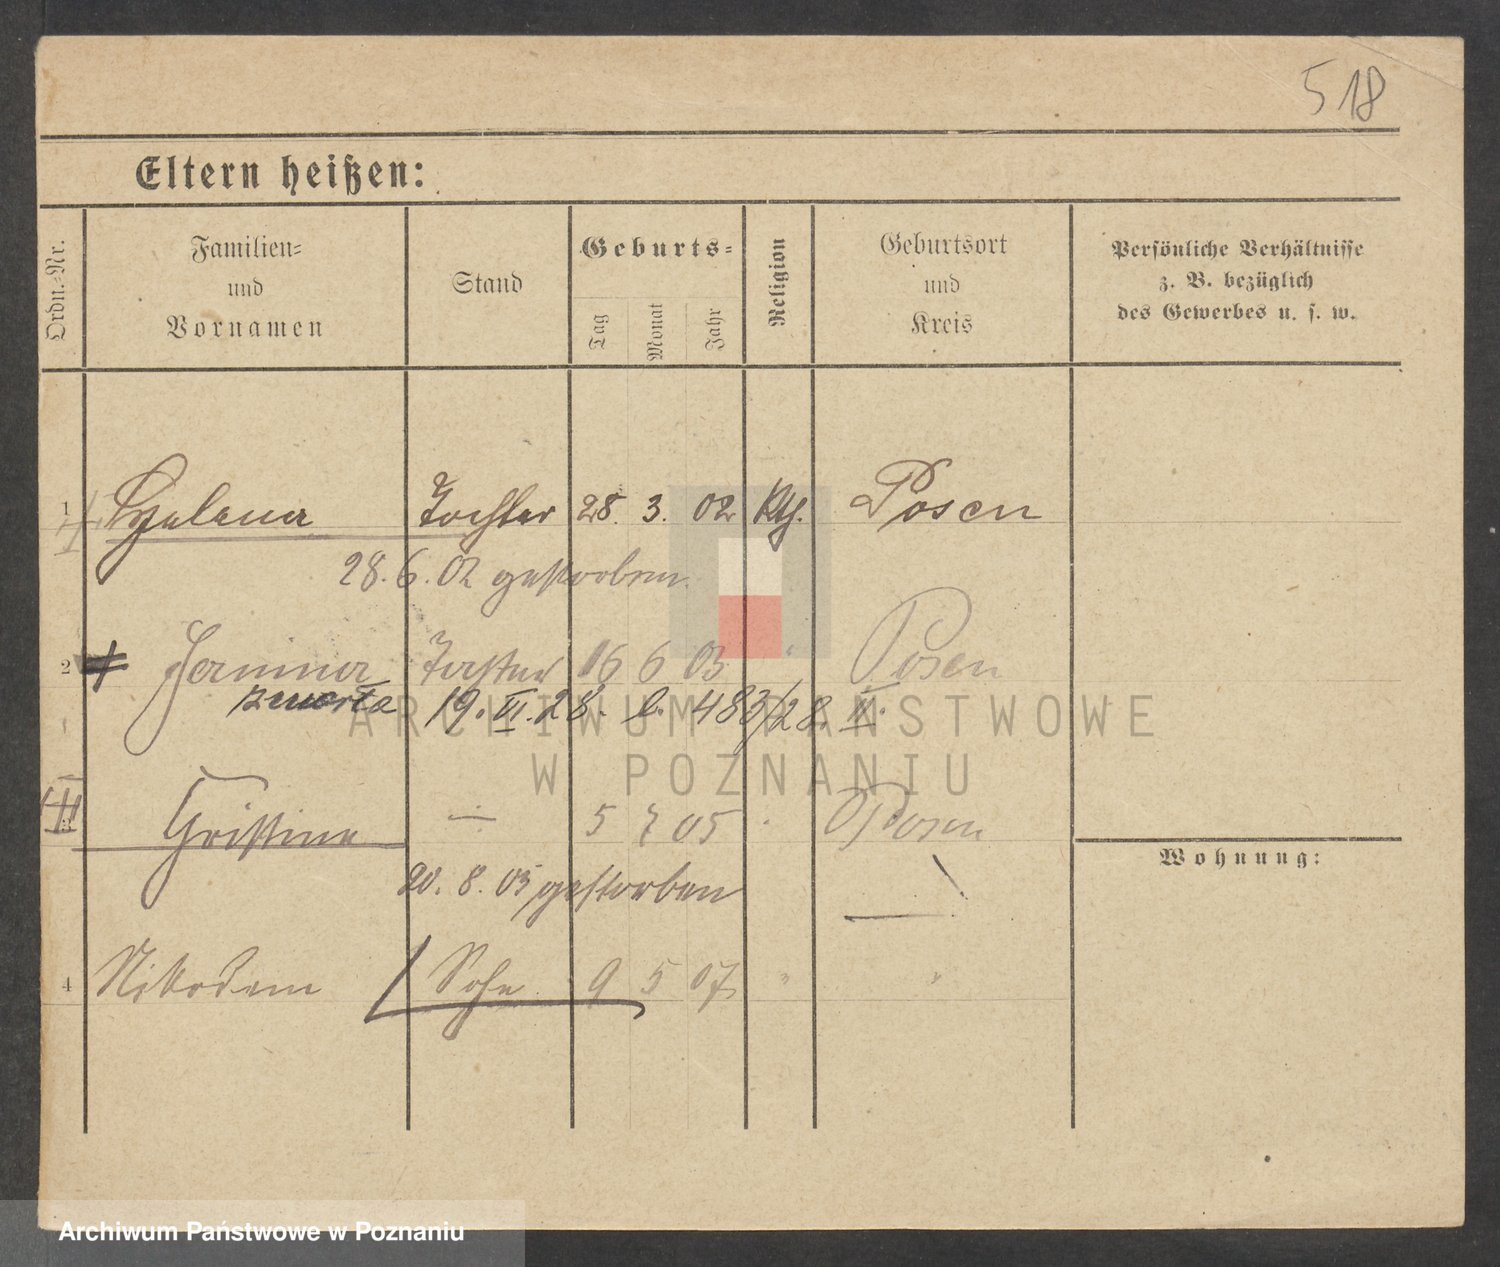 518
Eltern heißen:
Ordn.-Nr.
Familien-
und
Vornamen
Stand
Geburts-
Tag
Monat
Jahr
Religion
Geburtsort
und
Kreis
Persönliche Verhältnisse
z. B. bezüglich
des Gewerbes u. s. w.
1 Helena Tochter 28. 3. 02 Kth. Posen
28.6.02 gestorben.
2 Janina Tochter 16 6 03 " Posen
zmarła 19.VI.28. l. 483/28. II.
3 Cristina — 5 7 05 " Posen
20. 8. 05 gestorben
Wohnung:
4 Nikodem Sohn 9 5 07 " "
ARCHIWUM PAŃSTWOWE
W POZNANIU
Archiwum Państwowe w Poznaniu